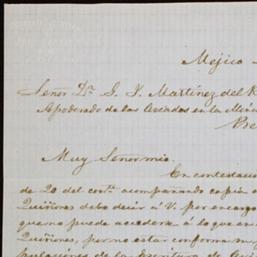 Méjico
Señor Dn. J. J. Martínez del R
Apoderado de los Aviados en la Min
Pre
Muy Señor mio.
En contestacio
de 20 del corte. acompañando copia
Quiñones debo decir á V. por encargo
que no puede accederá á lo que en
Quiñones, por no estar conforme